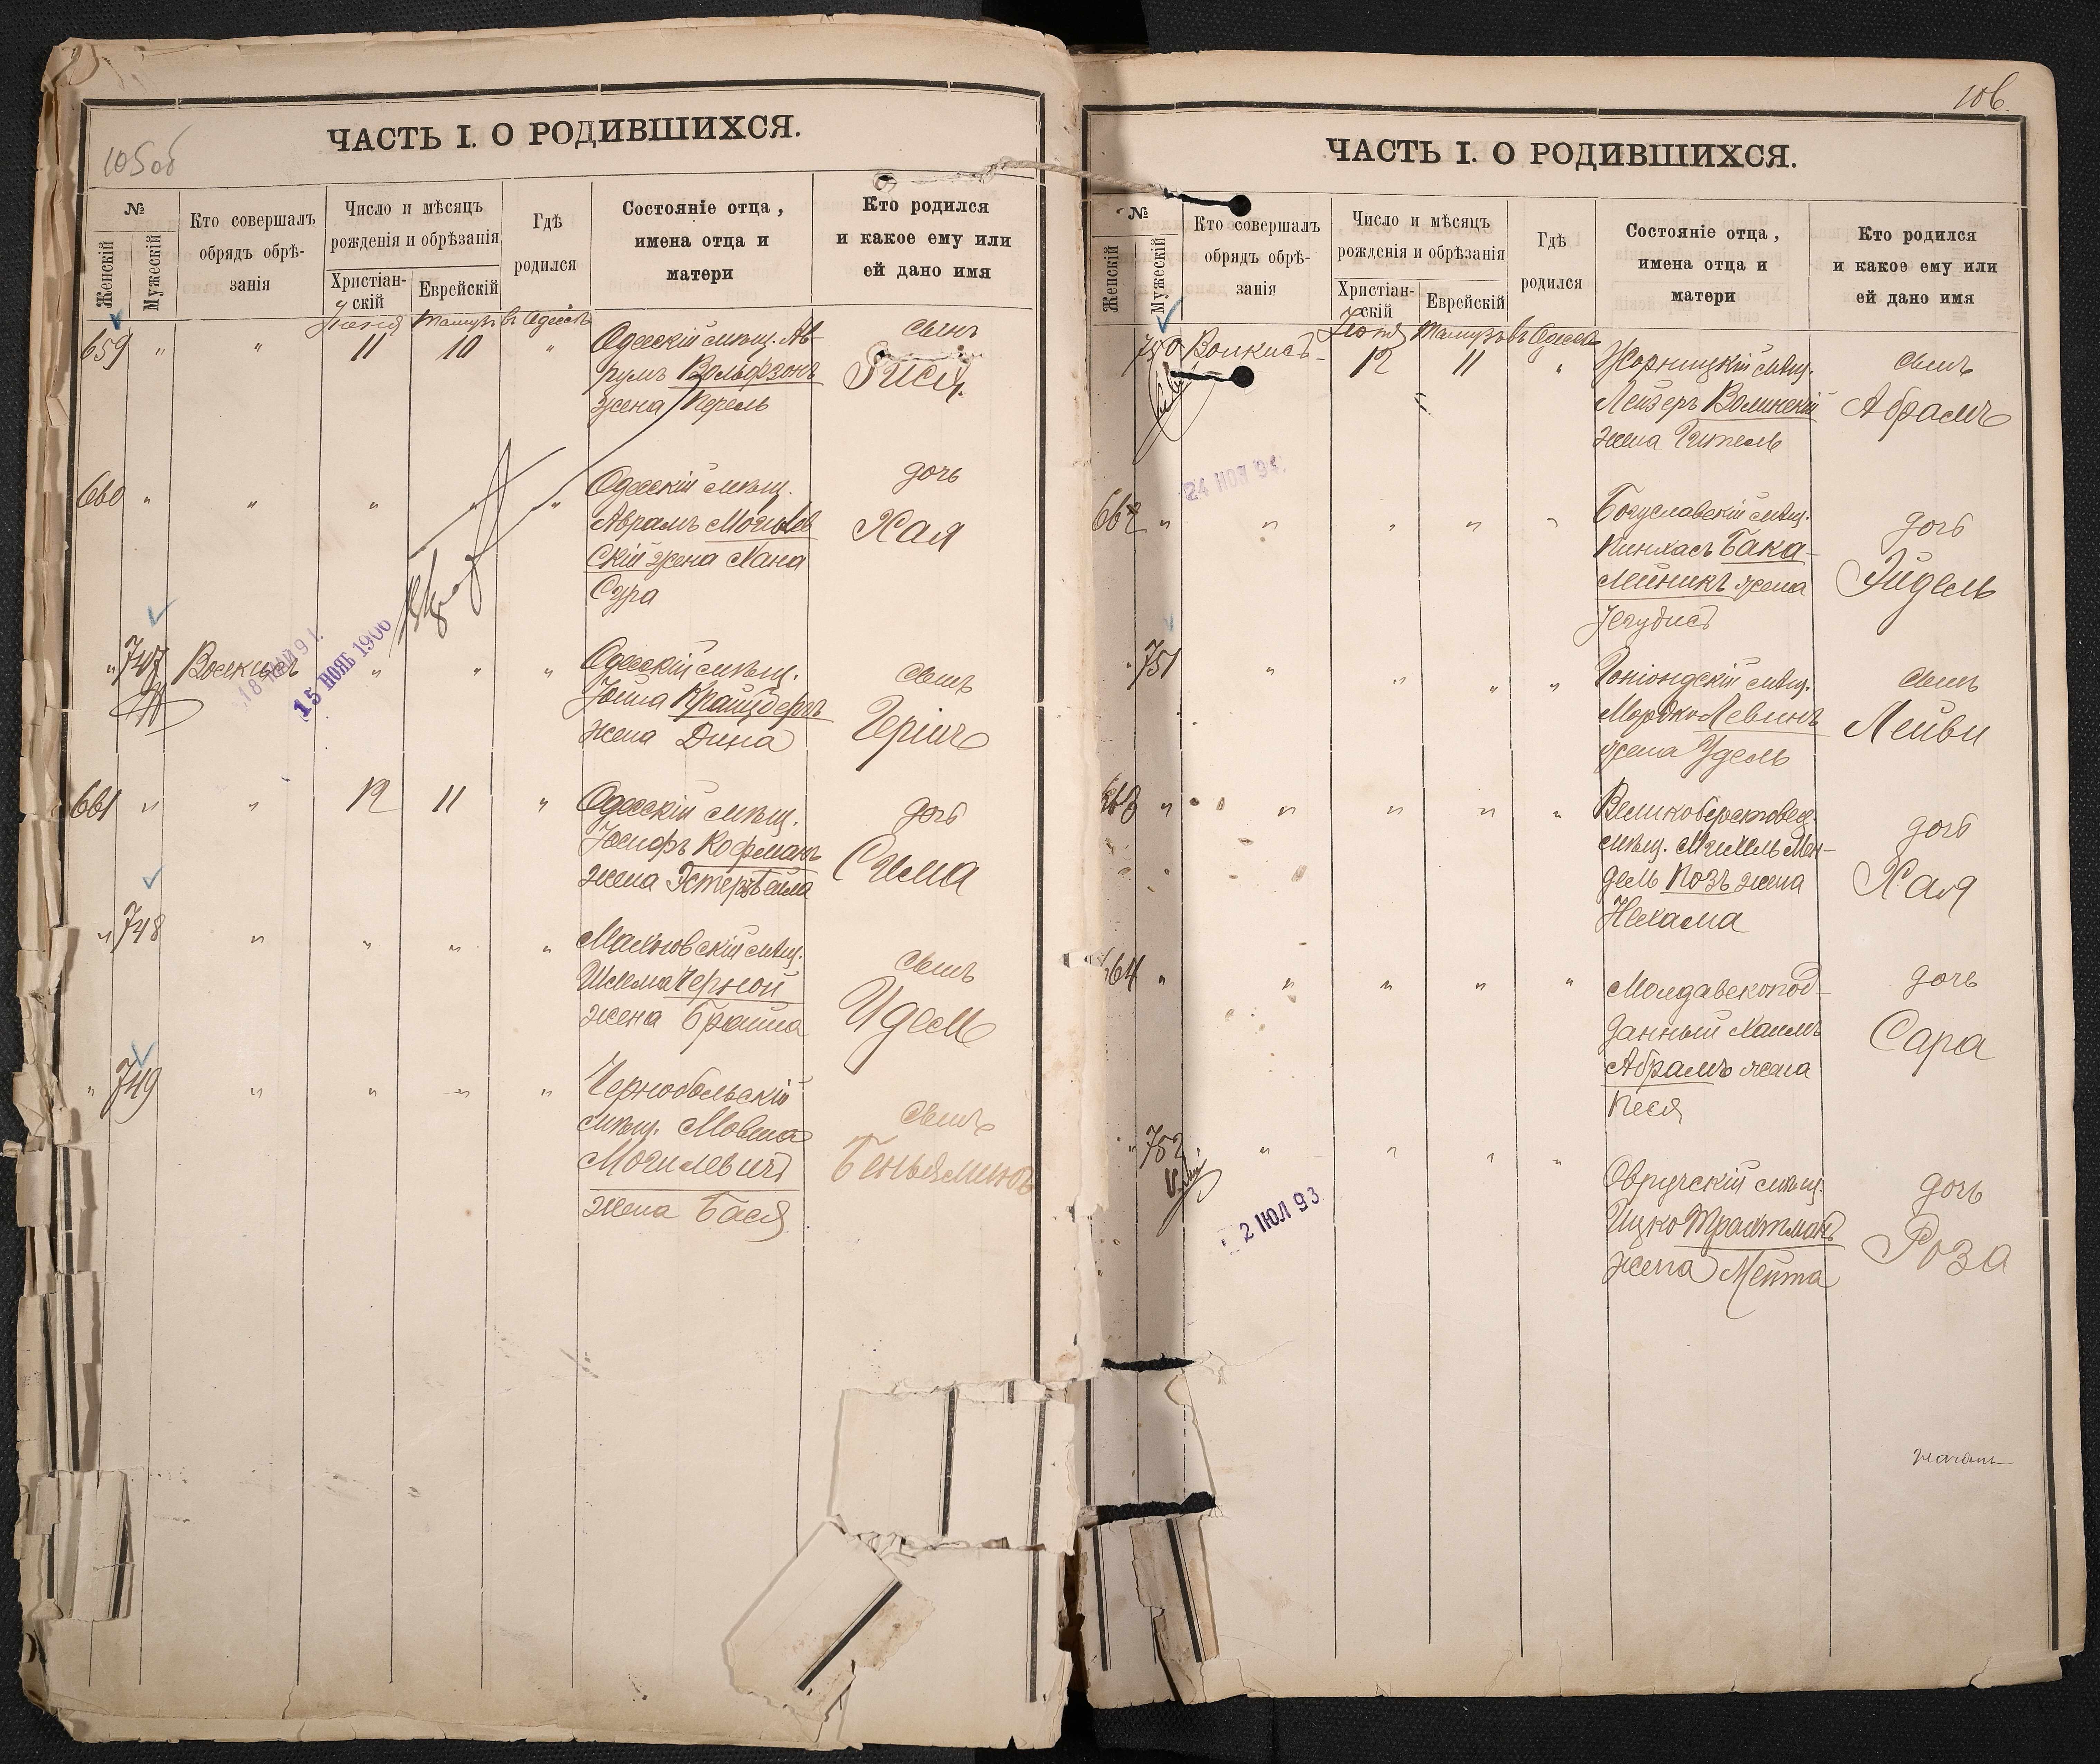 105об
ЧАСТЬ I. О РОДИВШИХСЯ.
№
Женскій
Мужескій
Кто совершалъ
обрядъ обрѣ-
занія
Число и мѣсяцъ
рожденія и обрѣзанія
Христіан-
скій
Еврейскій
Гдѣ
родился
Состояніе отца,
имена отца и
матери
Кто родился
и какое ему или
ей дано имя
Іюня Тамузъ въ Одессѣ
659 " " 11 10 "
Одесскій мѣщ. Ав-
румъ Вольфзонъ
жена Перель
сынъ
660 " " " " "
Одесскій мѣщ.
Аврамъ Могилев
скій жена Хана
Сура
дочь
Хая
" 747 " " "
18 МАЙ 91.
15 НОЯБ 1906
Одесскій мѣщ.
Крайцбергъ
жена Дина
сынъ
Гершъ
661 " " 12 11 "
Одесскій мѣщ.
Іосифъ Кофманъ
жена Эстеръ Бейла
дочь
Сима
" 748 " " " "
мѣщ.
Шлема Черной
жена Браина
сынъ
Идель
" 749 " " " "
Чернобыльскій
мѣщ. Мовша
Могилевичъ
жена Бася
сынъ
Беньяминъ
106.
ЧАСТЬ I. О РОДИВШИХСЯ.
№
Женскій
Мужескій
Кто совершалъ
обрядъ обрѣ-
занія
Число и мѣсяцъ
рожденія и обрѣзанія
Христіан-
скій
Еврейскій
Гдѣ
родился
Состояніе отца,
имена отца и
матери
Кто родился
и какое ему или
ей дано имя
Іюня Тамузъ въ Одессѣ
750 12 11 "
24 НОЯ
мѣщ.
Лейзеръ Волинскій
жена Гитель
сынъ
Абрамъ
662 " " " " "
Богуславскій мѣщ.
Пинхасъ Бака-
лейникъ жена
Іегудисъ
дочь
Эйдель
" 751 " " " "
Гоніондскій мѣщ.
Мордко Левинъ
жена Удель
сынъ
Лейви
663 " " " " "
Великоберестовец.
мѣщ. Михель Мен-
дель Позъ жена
Нехама
дочь
Хая
664 " " " " "
Молдавскопод-
данный Хаимъ
Абрамъ жена
Песя
дочь
Сара
" 752 " " " "
2 ІЮЛ 93
Овручскій мѣщ.
Ицко Трахтманъ
жена Мейта
дочь
Роза